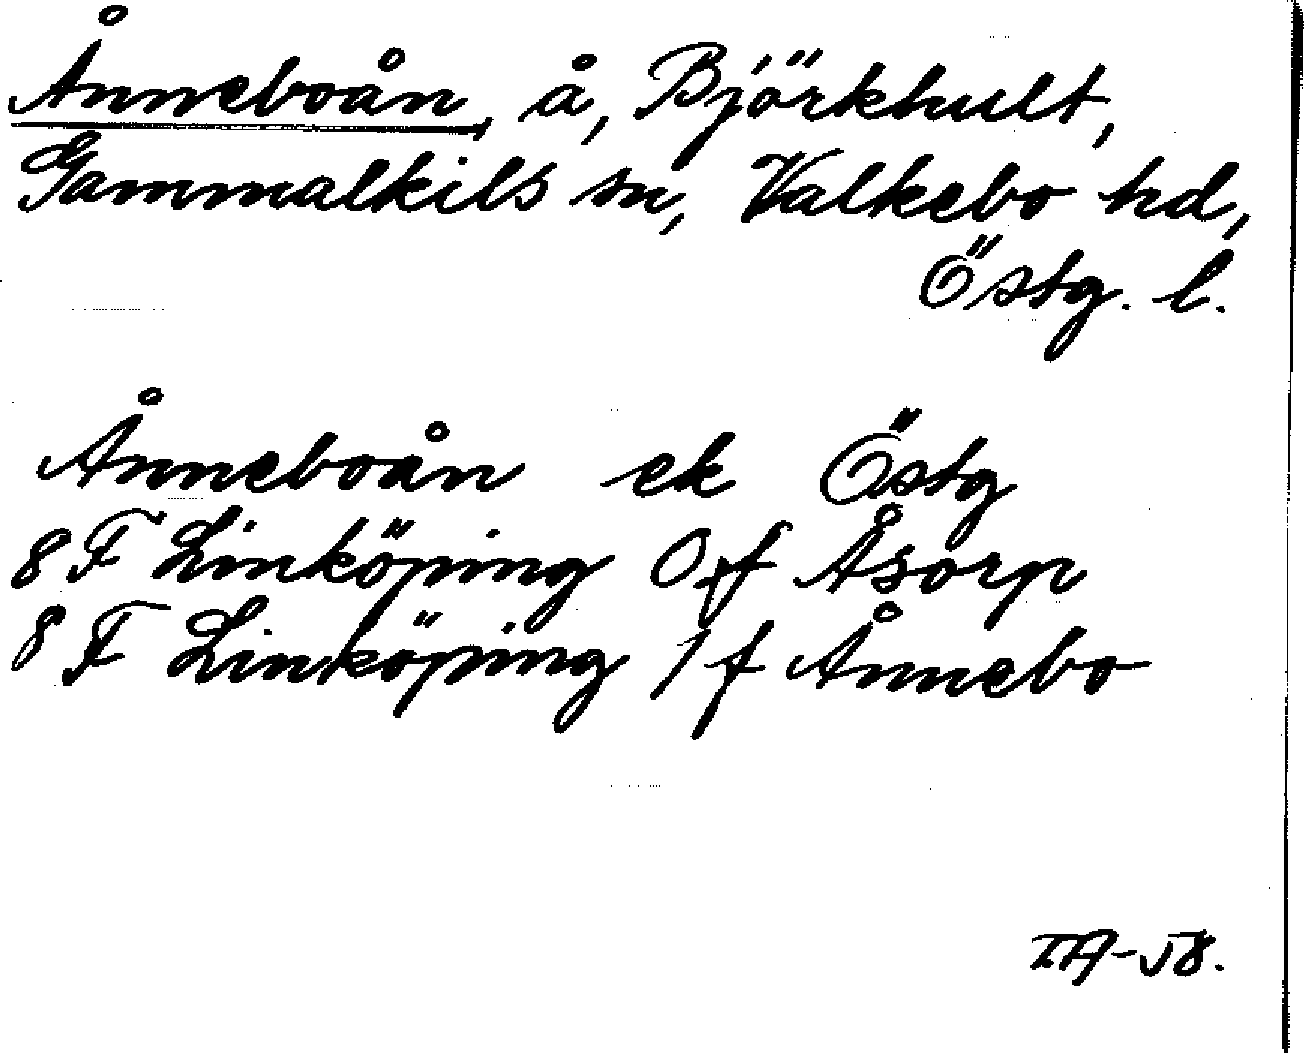 Ånneboån, å, Björkhult,
Gammalkils sn, Valkebo hd,
Östg. l.
Ånneboån ek Östg
8 F Linköping 0 f Åsorp
8 F Linköping 1 f Ånnebo
IA-58.